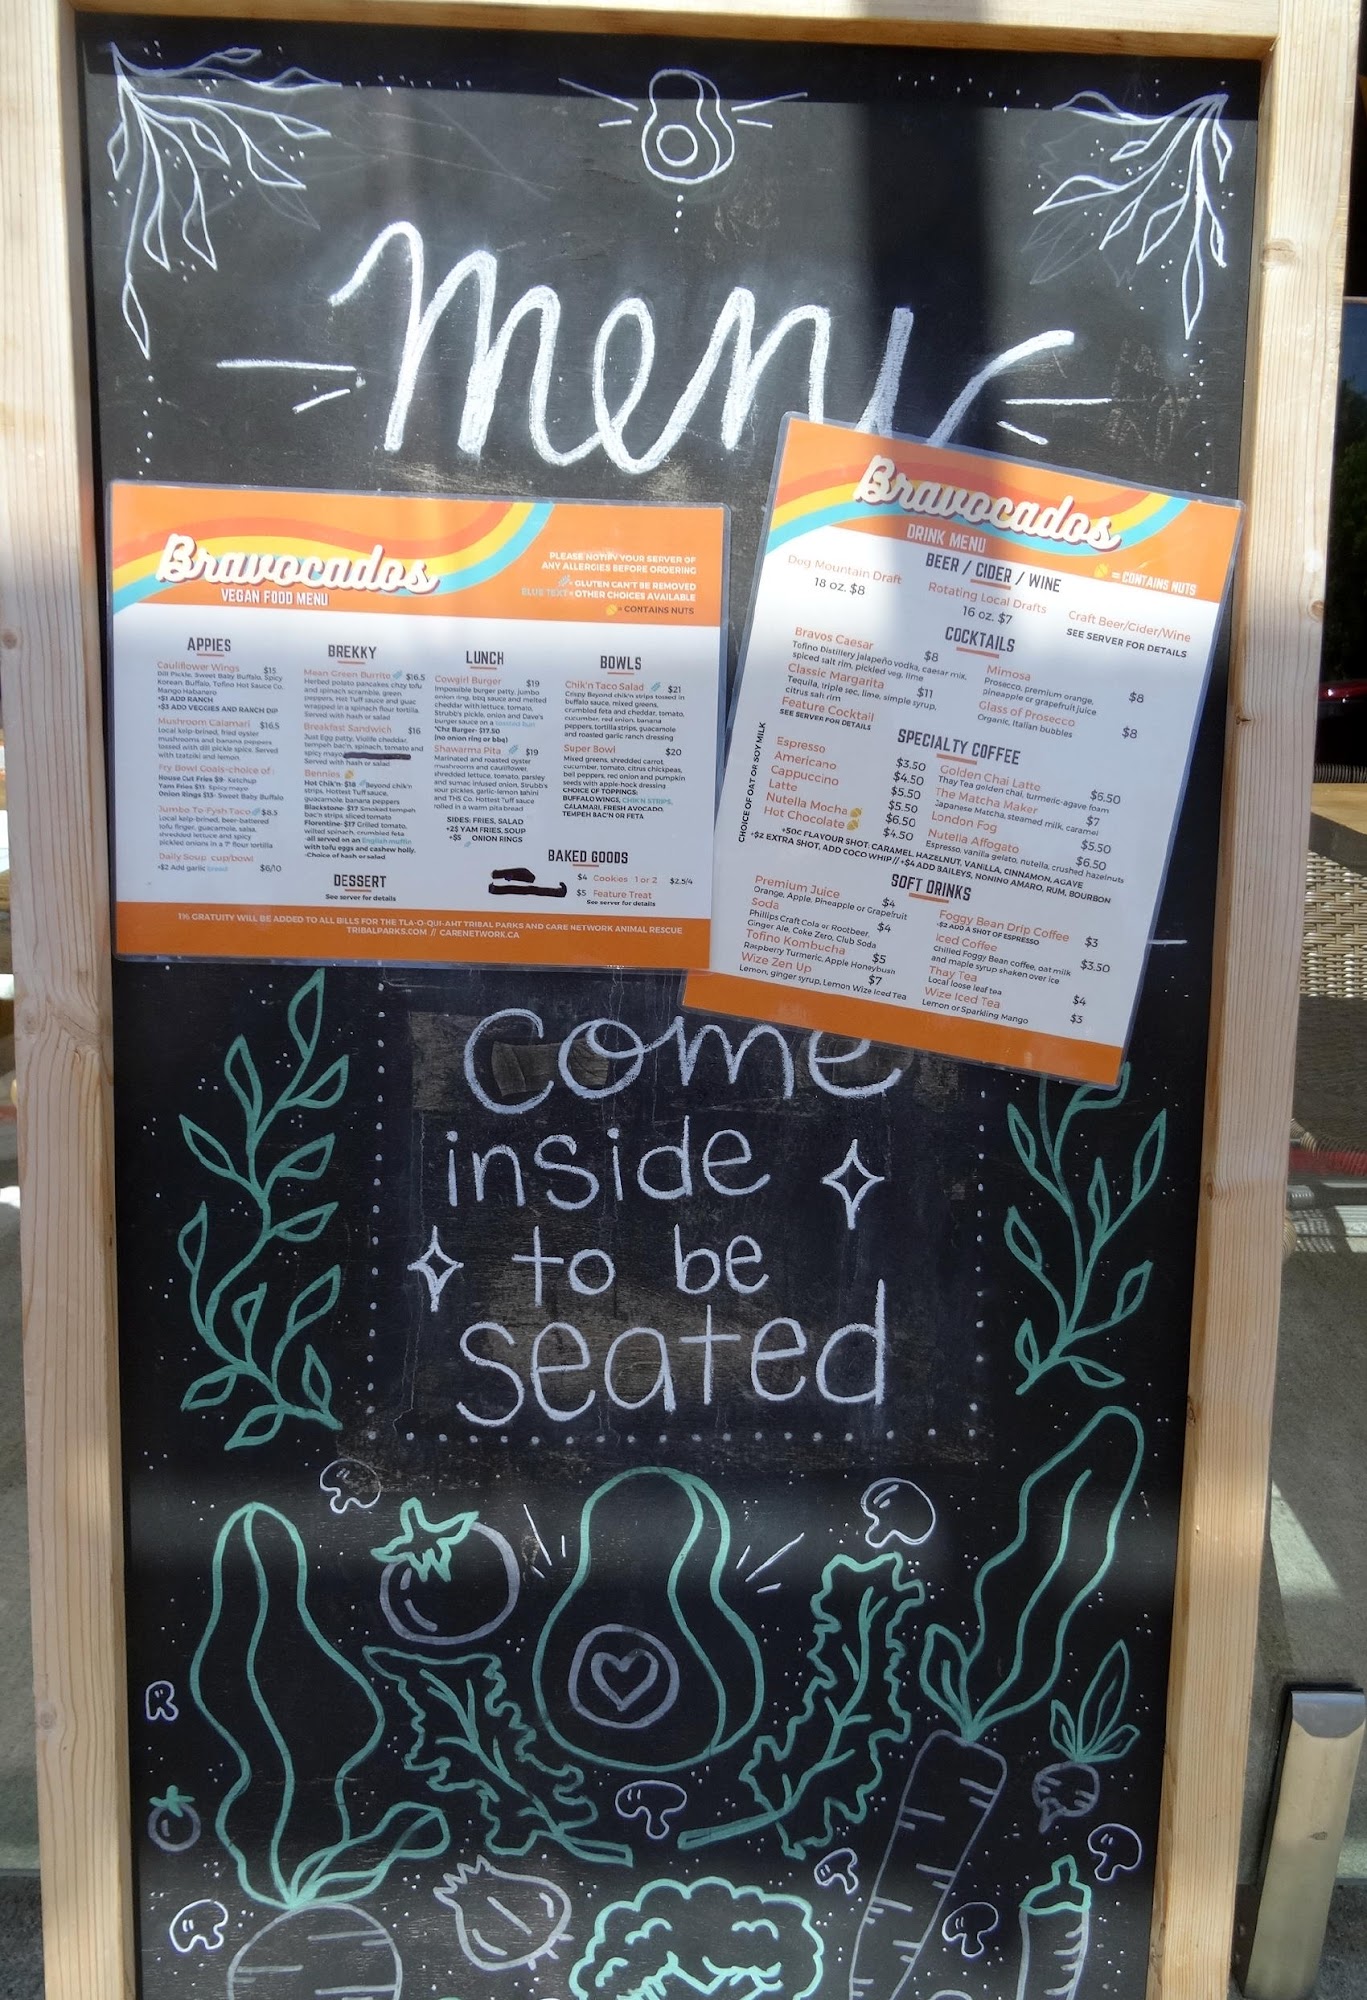 menu
Bravocados
VEGAN FOOD MENU
PLEASE NOTIFY YOUR SERVER OF
ANY ALLERGIES BEFORE ORDERING
= GLUTEN CAN'T BE REMOVED
BLUE TEXT = OTHER CHOICES AVAILABLE
= CONTAINS NUTS
APPIES
Cauliflower Wings $15
Dill Pickle, Sweet Baby Buffalo, Spicy
Korean Buffalo, Tofino Hot Sauce Co.
Mango Habanero
+$1 ADD RANCH
+$3 ADD VEGGIES AND RANCH DIP
Mushroom Calamari $16.5
Local kelp-brined, fried oyster
mushrooms and banana peppers
tossed with dill pickle spice. Served
with tzatziki and lemon
Fry Bowl Goals-choice of:
House Cut Fries $9- Ketchup
Yam Fries $11- Spicy mayo
Onion Rings $13- Sweet Baby Buffalo
Jumbo To-Fysh Taco $8.5
Local kelp-brined, beer-battered
tofu finger, guacamole, salsa,
shredded lettuce and spicy
pickled onions in a 7" flour tortilla
Daily Soup cup/bowl
+$2 Add garlic bread $6/10
BREKKY
Mean Green Burrito $16.5
Herbed potato pancakes, chzy tofu
and spinach scramble, green
peppers, Hot Tuff sauce and guac
wrapped in a spinach flour tortilla.
Served with hash or salad
Breakfast Sandwich $16
Just Egg patty, Violife cheddar,
tempeh bac'n, spinach, tomato and
spicy mayo
Served with hash or salad
Bennies
Hot Chik'n- $18 Beyond chik'n
strips, Hottest Tuff sauce,
guacamole, banana peppers
Blackstone- $17 Smoked tempeh
bac'n strips, sliced tomato
Florentine- $17 Grilled tomato,
wilted spinach, crumbled feta
-all served on an English muffin
with tofu eggs and cashew holly.
-Choice of hash or salad
DESSERT
See server for details
LUNCH
Cowgirl Burger $19
Impossible burger patty, jumbo
onion ring, bbq sauce and melted
cheddar with lettuce, tomato,
Strubb's pickle, onion and Dave's
burger sauce on a
*Chz Burger- $17.50
(no onion ring or bbq)
Shawarma Pita $19
Marinated and roasted oyster
mushrooms and cauliflower,
shredded lettuce, tomato, parsley
and sumac infused onion, Strubb's
sour pickles, garlic-lemon tahini
and THS Co. Hottest Tuff sauce
rolled in a warm pita bread
SIDES: FRIES, SALAD
+2$ YAM FRIES, SOUP
+$5 ONION RINGS
BOWLS
Chik'n Taco Salad $21
Crispy Beyond chik'n strips tossed in
buffalo sauce, mixed greens,
crumbled feta and cheddar, tomato,
cucumber, red onion, banana
peppers, tortilla strips, guacamole
and roasted garlic ranch dressing
Super Bowl $20
Mixed greens, shredded carrot,
cucumber, tomato, citrus chickpeas,
bell peppers, red onion and pumpkin
seeds with apple-hock dressing
CHOICE OF TOPPINGS:
BUFFALO WINGS, CHIK'N STRIPS,
CALAMARI, FRESH AVOCADO,
TEMPEH BAC'N OR FETA
BAKED GOODS
$4 Cookies 1 or 2 $2.5/4
$5 Feature Treat
See server for details
1% GRATUITY WILL BE ADDED TO ALL BILLS FOR THE TLA-O-QUI-AHT TRIBAL PARKS AND CARE NETWORK ANIMAL RESCUE
TRIBALPARKS.COM // CARENETWORK.CA
Bravocados
DRINK MENU
= CONTAINS NUTS
BEER / CIDER / WINE
Dog Mountain Draft
18 oz. $8
Rotating Local Drafts
16 oz. $7
Craft Beer/Cider/Wine
SEE SERVER FOR DETAILS
COCKTAILS
Bravos Caesar $8
Tofino Distillery jalapeño vodka, caesar mix,
spiced salt rim, pickled veg, lime
Classic Margarita $11
Tequila, triple sec, lime, simple syrup,
citrus salt rim
Feature Cocktail
SEE SERVER FOR DETAILS
Mimosa $8
Prosecco, premium orange,
pineapple or grapefruit juice
Glass of Prosecco $8
Organic, Italian bubbles
SPECIALTY COFFEE
CHOICE OF OAT OR SOY MILK
Espresso $3.50
Americano $4.50
Cappuccino $5.50
Latte $5.50
Nutella Mocha $6.50
Hot Chocolate $4.50
Golden Chai Latte $6.50
Thay Tea golden chai, turmeric-agave foam
The Matcha Maker $7
Japanese Matcha, steamed milk, caramel
London Fog $5.50
Nutella Affogato $6.50
Espresso, vanilla gelato, nutella, crushed hazelnuts
+50¢ FLAVOUR SHOT: CARAMEL, HAZELNUT, VANILLA, CINNAMON, AGAVE
+$2 EXTRA SHOT, ADD COCO WHIP // +$4 ADD BAILEYS, NONINO AMARO, RUM, BOURBON
SOFT DRINKS
Premium Juice $4
Orange, Apple, Pineapple or Grapefruit
Soda $4
Phillips Craft Cola or Rootbeer,
Ginger Ale, Coke Zero, Club Soda
Tofino Kombucha $5
Raspberry Turmeric, Apple Honeybush
Wize Zen Up $7
Lemon, ginger syrup, Lemon Wize Iced Tea
Foggy Bean Drip Coffee $3
+$2 ADD A SHOT OF ESPRESSO
Iced Coffee $3.50
Chilled Foggy Bean coffee, oat milk
and maple syrup shaken over ice
Thay Tea $4
Local loose leaf tea
Wize Iced Tea $3
Lemon or Sparkling Mango
come
inside
to be
seated